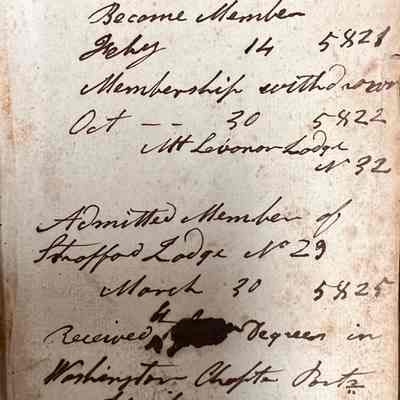 Become Member
Feby 14 5821
Membership withdrawn
Oct -- 30 5822
Mt Levonor Lodge
No 32
Admitted Member of
Strafford Lodge No 29
March 30 5825
Received 4 Degrees in
Washington Chapter